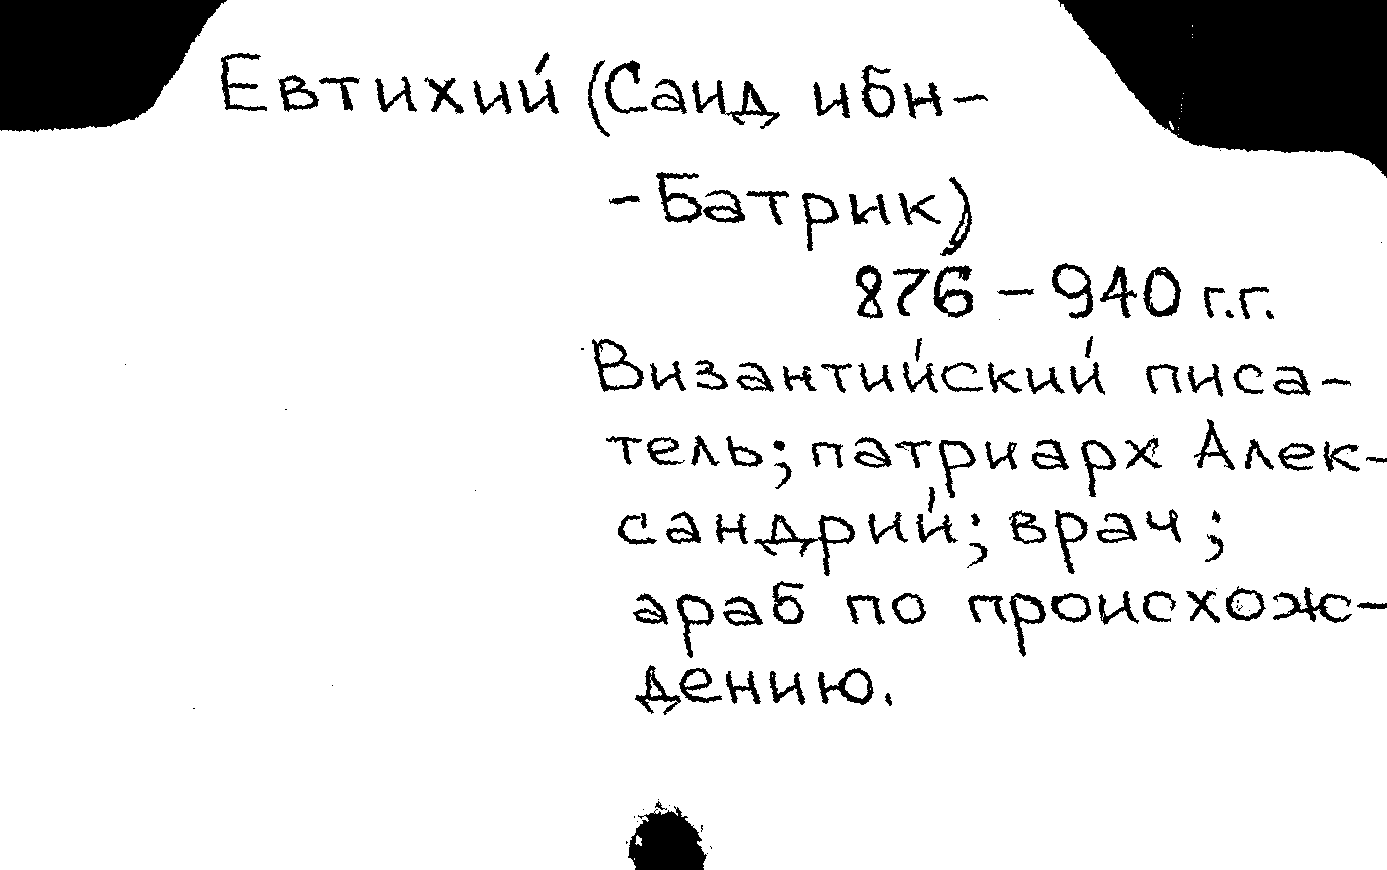 Евтихий (Саид ибн-
-Батрик)
876 – 940 г.г.
Византийский писа-
тель; патриарх Алек-
сандрий; врач;
араб по происхож-
дению.